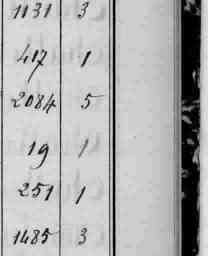 1131 3
417 1
2084 5
19 1
251 1
1485 3